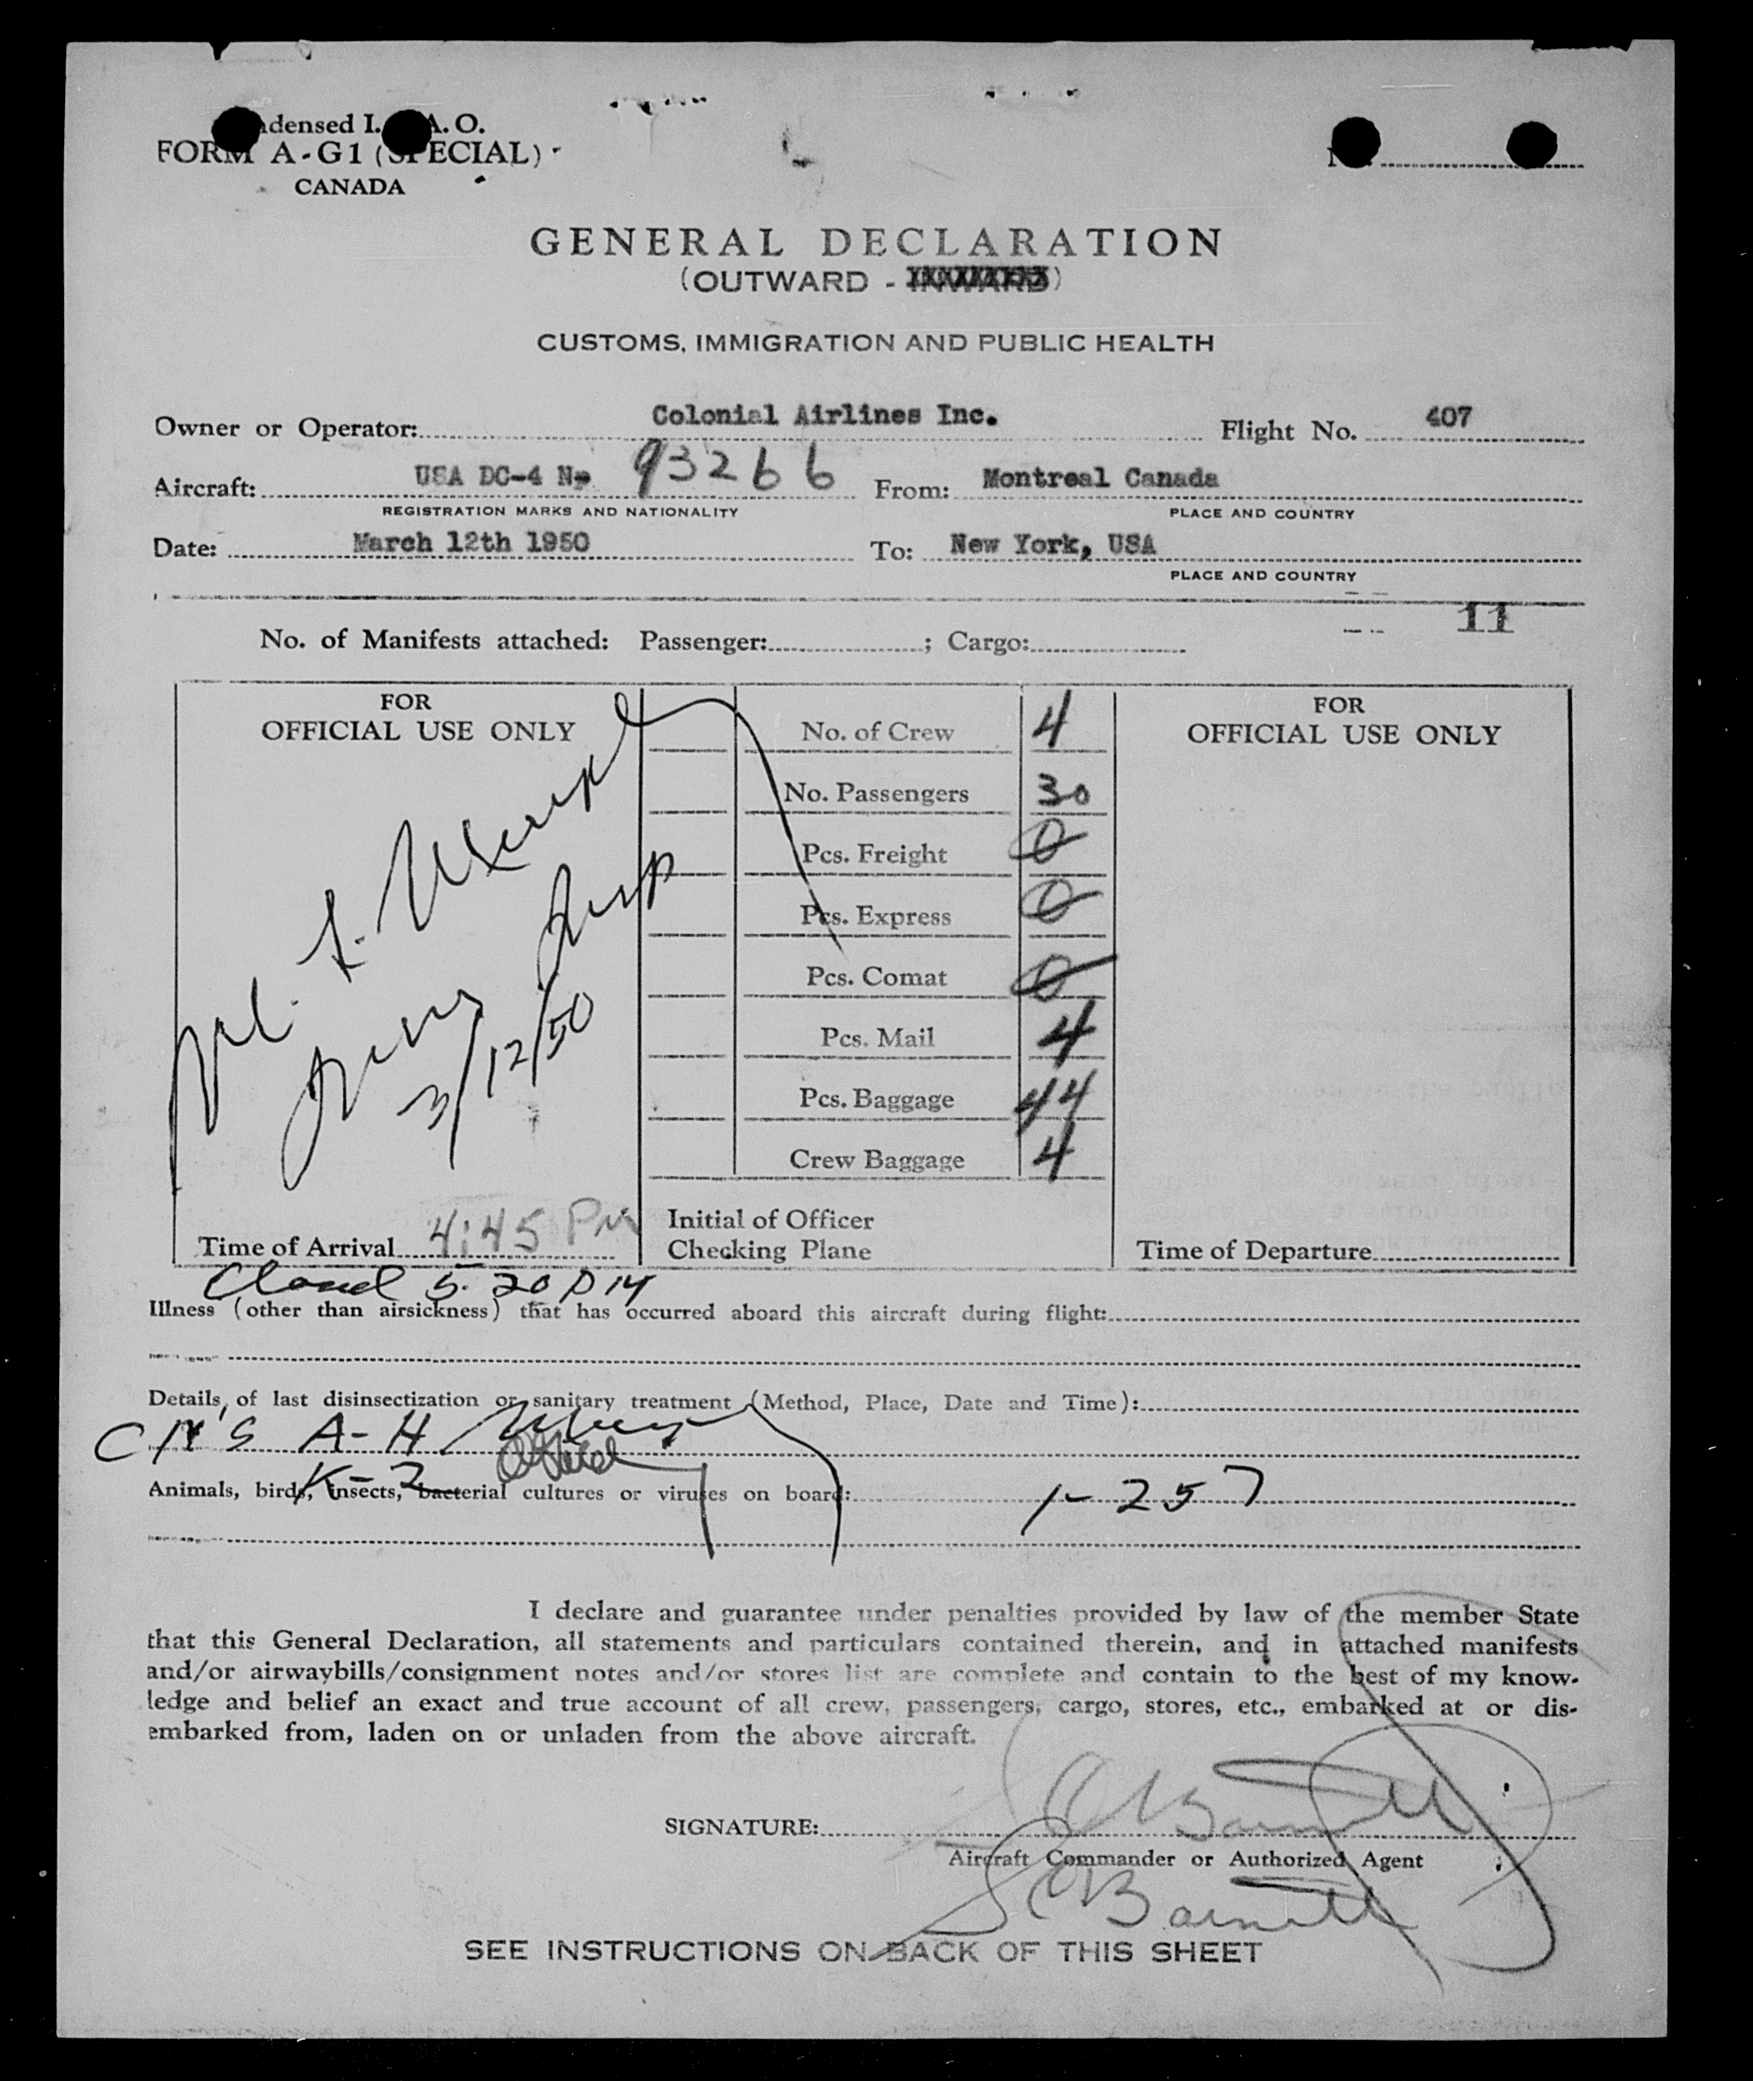 Condensed I.C.A.O.
FORM A-G1 (SPECIAL)
CANADA
No.
GENERAL DECLARATION
(OUTWARD - INWARD)
CUSTOMS, IMMIGRATION AND PUBLIC HEALTH
Owner or Operator: Colonial Airlines Inc. Flight No. 407
Aircraft: USA DC-4 N- 93266 From: Montreal Canada
REGISTRATION MARKS AND NATIONALITY PLACE AND COUNTRY
Date: March 12th 1950 To: New York, USA
PLACE AND COUNTRY
11
No. of Manifests attached: Passenger: ; Cargo:
FOR
OFFICIAL USE ONLY
3/12/50
Time of Arrival 4:45 PM
No. of Crew 4
No. Passengers 30
Pcs. Freight 0
Pcs. Express 0
Pcs. Comat 0
Pcs. Mail 4
Pcs. Baggage 44
Crew Baggage 4
Initial of Officer
Checking Plane
FOR
OFFICIAL USE ONLY
Time of Departure
5.20 PM
Illness (other than airsickness) that has occurred aboard this aircraft during flight:
Details of last disinsectization or sanitary treatment (Method, Place, Date and Time):
A-H
K-2
Animals, birds, insects, bacterial cultures or viruses on board: 1-257
I declare and guarantee under penalties provided by law of the member State
that this General Declaration, all statements and particulars contained therein, and in attached manifests
and/or airwaybills/consignment notes and/or stores list are complete and contain to the best of my know-
ledge and belief an exact and true account of all crew, passengers, cargo, stores, etc., embarked at or dis-
embarked from, laden on or unladen from the above aircraft.
SIGNATURE: Barnett
Aircraft Commander or Authorized Agent
Barnett
SEE INSTRUCTIONS ON BACK OF THIS SHEET